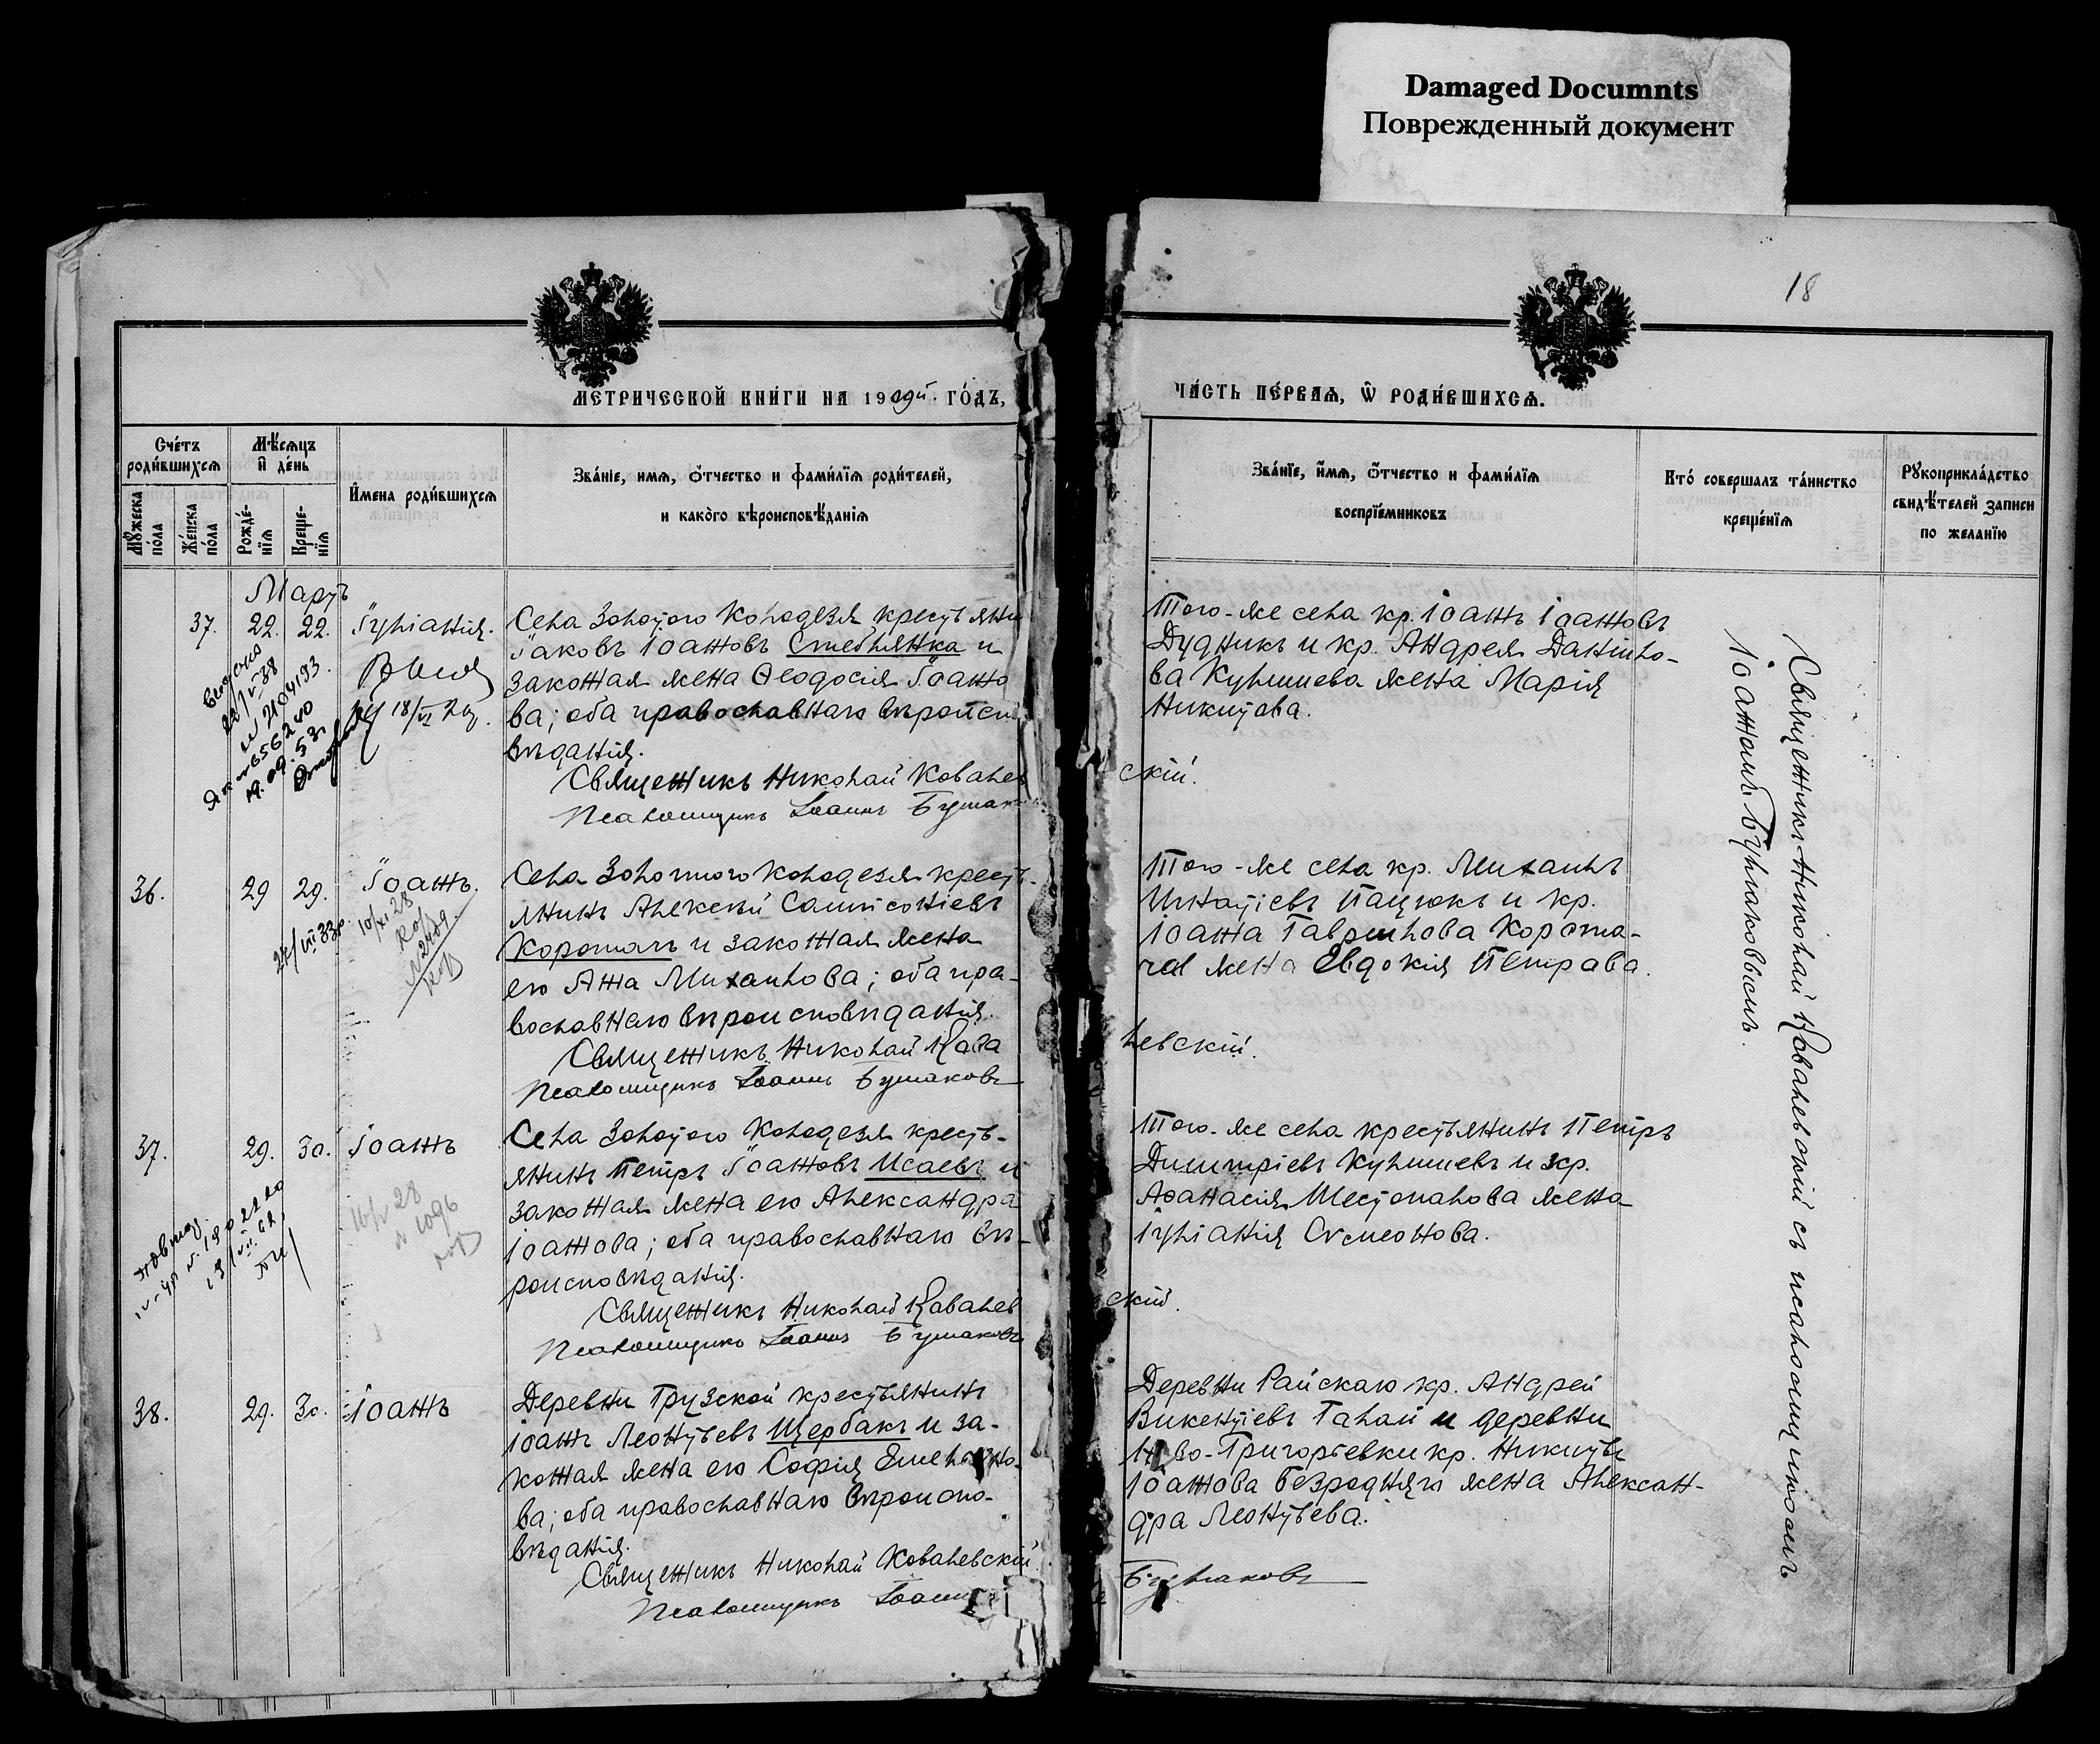 Damaged Documnts
Поврежденный документ
18
МЕТРИЧЕСКОЙ КНИ́ГИ НА 1909й ГО́ДЪ,
ЧА́СТЬ ПЕ́РВАѦ, Ѽ РОДИ́ВШИХСѦ.
Счéтъ
роди́вшихсѧ
Мѣ́сѧцъ
и҆ де́нь
Мꙋжеска
по́ла
Же́нска
по́ла
Рожде́-
нїѧ
Креще-
нїѧ
И҆мена роди́вшихсѧ
Зва́нїе, имѧ, ѻ҆́тчество и фами́лїѧ роди́телей,
и како́го вѣроисповѣ́данїѧ
Зва́нїе, и҆́мѧ, ѻ҆́тчество и фами́лїѧ
воспрїе́мниковъ
Кто́ совершалъ та́инство
креще́нїѧ
Рꙋкоприкла́дство
свидѣ́телей записи
по жела́нїю
Мартъ
37. 22. 22. Іуліанія.
Села Золотого Колодезя крестьяни
Іаковъ Іоанновъ Стеблянка и
законная жена Ѳеодосія Іоанно
ва; оба православнаго вѣроиспо
вѣданія.
Священникъ Николай Ковалев
Псаломщикъ Іоаннъ Бушак
Того-же села кр. Іоаннъ Іоанновъ
Дудникъ и кр. Андрея Данило-
ва Кулишева жена Марія
Никитова.
скій.
22/IV-38
19.09.53
18/VI
36. 29 29. Іоаннъ.
Села Золотого Колодезя кресть-
янинъ Алексѣй Сампсоніевъ
Коротачъ и законная жена
его Анна Михаилова; оба пра-
вославнаго вѣроисповѣданія.
Священникъ Николай Кова
Псаломщикъ Іоаннъ Бушаковъ
Того-же села кр. Михаилъ
Игнатіевъ Пацюкъ и кр.
Іоанна Гаврилова Корота-
ча жена Евдокія Петрова.
левскій.
37. 29. 30. Іоаннъ
Села Золотого Колодезя кресть-
янинъ Петръ Іоанновъ Исаевъ и
законная жена его Александра
Іоаннова; оба православнаго вѣ-
роисповѣданія.
Священникъ Николай Ковалев
Псаломщикъ Іоаннъ Бушаковъ
Того-же села крестьянинъ Петръ
Димитріевъ Кулишевъ и кр.
Аѳанасія Шестопалова жена
Іуліанія Сѵмеонова.
скій.
38. 29. 30. Іоаннъ
Деревни Грузской крестьянинъ
Іоаннъ Леонтьевъ Щербакъ и за-
конная жена его Софія Емельяно-
ва; оба православнаго вѣроиспо-
вѣданія.
Священникъ Николай Ковалевскій
Псаломщикъ Іоаннъ
Деревни Райскаго кр. Андрей
Викентіевъ Галай и деревни
Ново-Григорьевки кр. Никиты
Іоаннова Безродняго жена Алексан-
дра Леонтьева.
Бушаковъ
Священникъ Николай Ковалевскій съ псаломщикомъ
Іоанномъ Бушаковымъ.